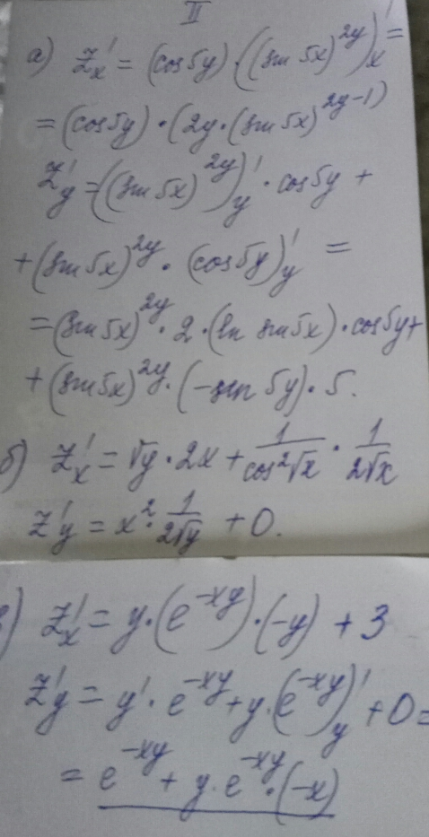 II
а) z'ₓ = (cos 5y) · ((sin 5x)^{2y})'ₓ =
= (cos 5y) · (2y · (sin 5x)^{2y-1})
z'_y = ((sin 5x)^{2y})'_y · cos 5y +
+ (sin 5x)^{2y} · (cos 5y)'_y =
= (sin 5x)^{2y} · 2 · (ln sin 5x) · cos 5y +
+ (sin 5x)^{2y} · (-sin 5y) · 5.
б) z'ₓ = √y · 2x + 1/(cos²√x) · 1/(2√x)
z'_y = x² · 1/(2√y) + 0.
в) z'ₓ = y · (e^{-xy}) · (-y) + 3
z'_y = y' · e^{-xy} + y · (e^{-xy})'_y + 0 =
= e^{-xy} + y · e^{-xy} · (-x)